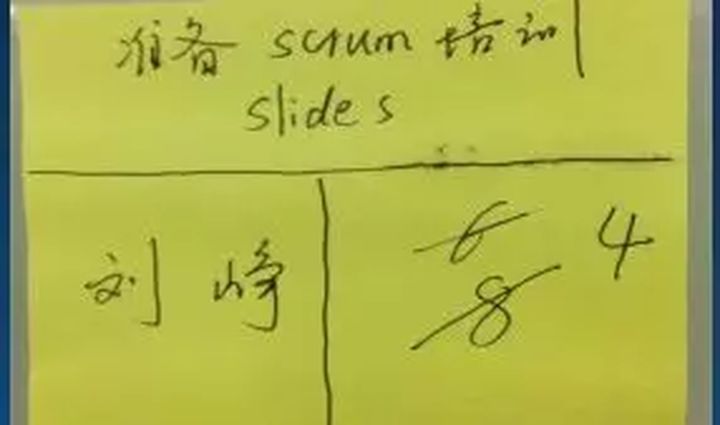 准备 scrum 培训
slides
刘 峥
6 4
8